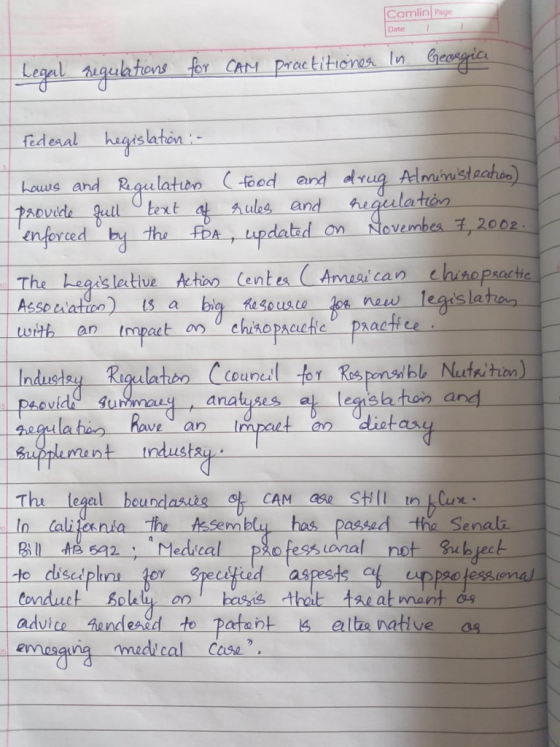 Camlin Page
Date / /
Legal regulations for CAM practitioner In Georgia
Federal Legislation:-
Laws and Regulation (Food and drug Administration)
provide full text of rules and regulation
enforced by the FDA, updated on November 7, 2002.
The Legislative Action Center (American chiropractic
Association) is a big resource for new legislation
with an impact on chiropractic practice.
Industry Regulation (council for Responsible Nutrition)
provide summary, analyses of legislation and
regulation have an impact on dietary
supplement industry.
The legal boundaries of CAM are still in flux.
In california the Assembly has passed the Senate
Bill AB 592; "Medical professional not subject
to discipline for specified aspects of upprofessional
conduct solely on basis that treatment or
advice rendered to patent is alternative or
emerging medical care".